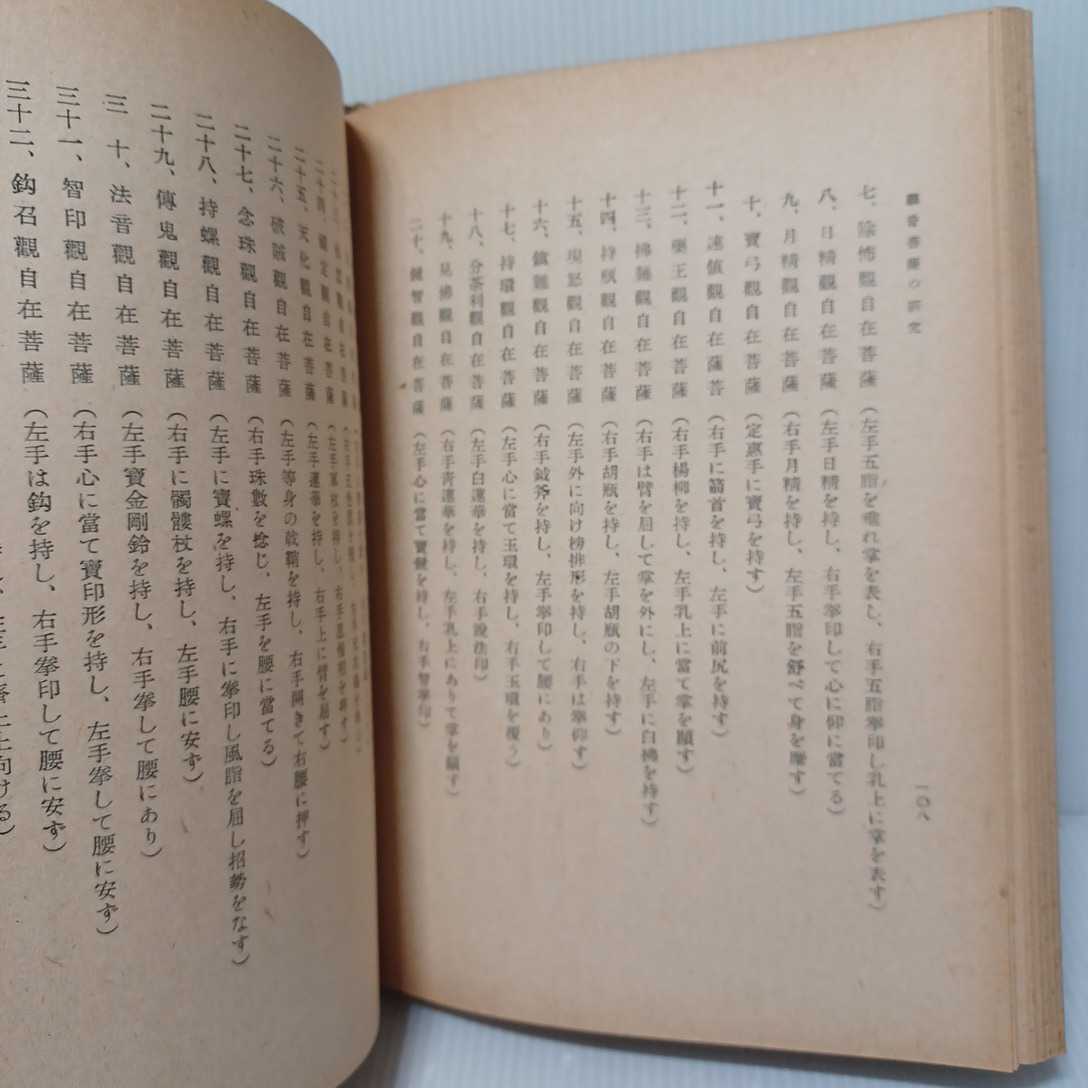 觀音菩薩の硏究
一〇八
七、除怖觀自在菩薩（左手五脂を垂れ掌を表し、右手五脂拳印し乳上に掌を表す）
八、日精觀自在菩薩（左手日精を持し、右手拳印して心に仰に當てる）
九、月精觀自在菩薩（右手月精を持し、左手五脂を舒べて身を靡す）
十、寶弓觀自在菩薩（定惠手に寶弓を持す）
十一、速値觀自在薩菩（右手に箭首を持し、左手に前尻を持す）
十二、藥王觀自在菩薩（右手楊柳を持し、左手乳上に當て掌を顯す）
十三、拂難觀自在菩薩（右手は臂を屈して掌を外にし、左手に白拂を持す）
十四、持瓶觀自在菩薩（右手胡瓶を持し、左手胡瓶の下を持す）
十五、現怒觀自在菩薩（左手外に向け榜排形を持し、右手は拳仰す）
十六、鎮難觀自在菩薩（右手鉞斧を持し、左手拳印して腰にあり）
十七、持環觀自在菩薩（左手心に當て玉環を持し、右手玉環を覆う）
十八、分荼利觀自在菩薩（左手白蓮華を持し、右手說法印）
十九、見佛觀自在菩薩（右手靑蓮華を持し、左手乳上にありて掌を顯す）
二十、鏡智觀自在菩薩（左手心に當て寶鏡を持し、右手智拳印）
二十四、鎮定觀自在菩薩（左手軍杖を持し、右手
二十五、天化觀自在菩薩（左手蓮華を持し、右手上に臂を屈す）
二十六、破賊觀自在菩薩（左手等身の戟鞘を持し、右手開きて右腰に押す）
二十七、念珠觀自在菩薩（右手珠數を捻じ、左手を腰に當てる）
二十八、持螺觀自在菩薩（左手に寶螺を持し、右手に拳印し風脂を屈し招勢をなす）
二十九、傳鬼觀自在菩薩（右手に髑髏杖を持し、左手腰に安ず）
三十、法音觀自在菩薩（左手寶金剛鈴を持し、右手拳して腰にあり）
三十一、智印觀自在菩薩（右手心に當て寶印形を持し、左手拳して腰に安ず）
三十二、鈎召觀自在菩薩（左手は鈎を持し、右手拳印して腰に安ず）
向ける）